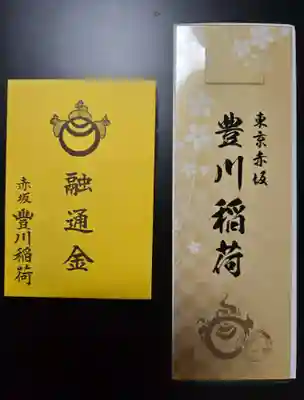 融通金
赤坂 豊川稲荷
東京赤坂
豊川稲荷